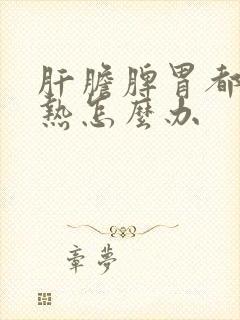 肝膽脾胃都
熱怎麼办
章夢